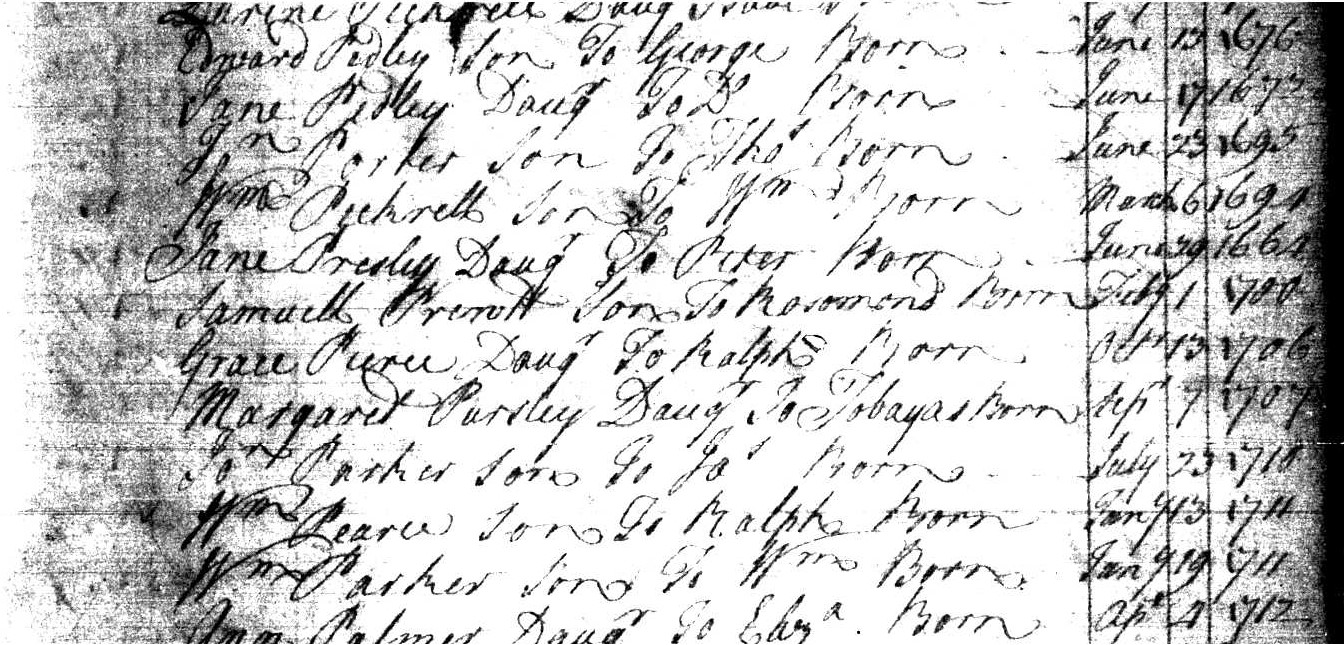 Pickrell Daug Isaac
Edward Pedley Son To George Born June 13 1676
Jane Pedley Daugr To Do Born June 17 1673
Jn Porter Son To Thos Born June 23 1695
Wm Pickrell Son To Wm Born March 6 1694
Jane Presley Daugr To Peter Born June 29 1662
Samuell Son To Rosomond Born Feby 1 1700
Grace Pierce Daugr To Ralph Born Octr 13 1706
Margaret Pursley Daugr To Tobayas Born Sepr 7 1707
Jn Parker Son To Jos Born July 23 1710
Wm Pearce Son To Ralph Born Jany 13 1711
Wm Parker Son To Wm Born Jany 19 1711
Ann Palmer Daugr To Eliza. Born Apr 4 1712